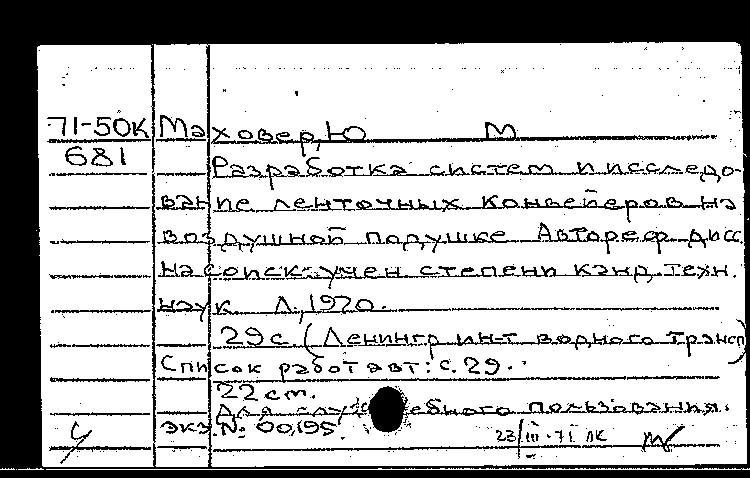 71-50к Маховер, Ю М
681
Разработка систем и исследо-
вание ленточных конвейеров на
воздушной подушке Автореф дисс.
на соиск. учен степени канд. техн.
наук Л., 1970.
29 с (Ленингр ин-т водного трансп)
Список работ авт: с. 29.
22 cm.
Для служебного пользования.
экз. № 00195.
23/III-71 ЛК